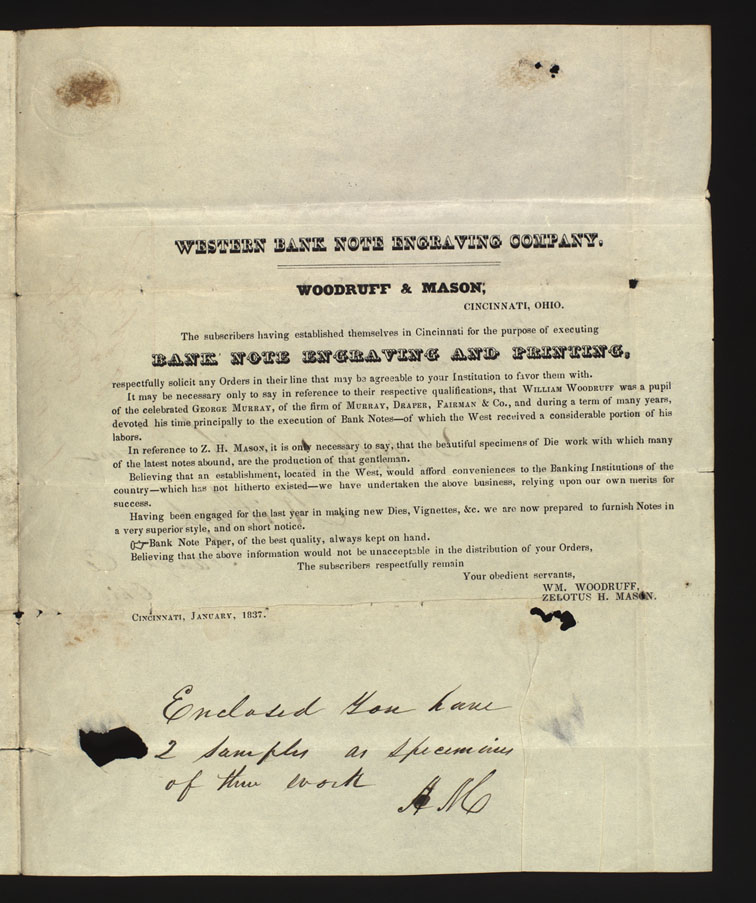 WESTERN BANK NOTE ENGRAVING COMPANY.
WOODRUFF & MASON,
CINCINNATI, OHIO.
The subscribers having established themselves in Cincinnati for the purpose of executing
BANK NOTE ENGRAVING AND PRINTING,
respectfully solicit any Orders in their line that may be agreeable to your Institution to favor them with.
It may be necessary only to say in reference to their respective qualifications, that WILLIAM WOODRUFF was a pupil
of the celebrated GEORGE MURRAY, of the firm of MURRAY, DRAPER, FAIRMAN & Co., and during a term of many years,
devoted his time principally to the execution of Bank Notes—of which the West received a considerable portion of his
labors.
In reference to Z. H. MASON, it is only necessary to say, that the beautiful specimens of Die work with which many
of the latest notes abound, are the production of that gentleman.
Believing that an establishment, located in the West, would afford conveniences to the Banking Institutions of the
country—which has not hitherto existed—we have undertaken the above business, relying upon our own merits for
success.
Having been engaged for the last year in making new Dies, Vignettes, &c. we are now prepared to furnish Notes in
a very superior style, and on short notice.
☞Bank Note Paper, of the best quality, always kept on hand.
Believing that the above information would not be unacceptable in the distribution of your Orders,
The subscribers respectfully remain
Your obedient servants,
WM. WOODRUFF,
ZELOTUS H. MASON.
CINCINNATI, JANUARY, 1837.
Enclosed You have
2 samples as specimins
of thir work
A M